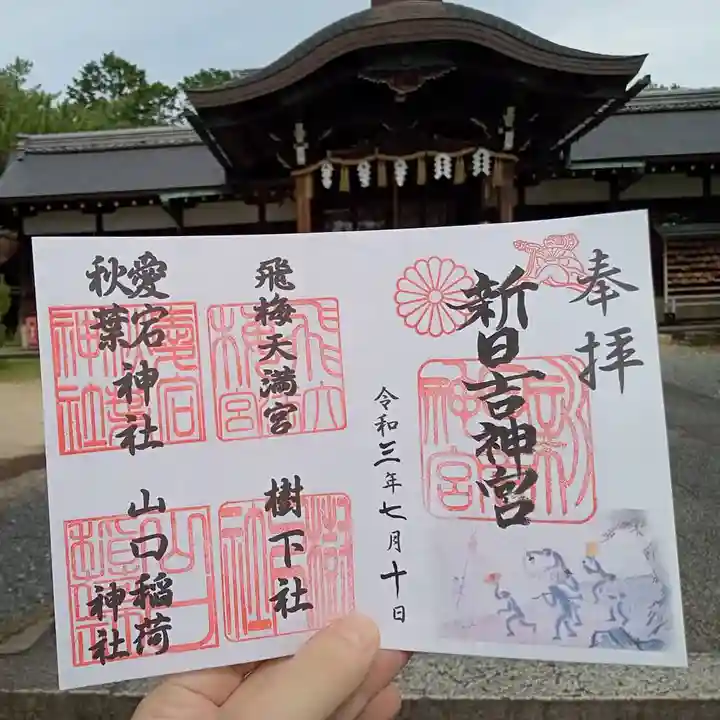 奉拝
新日吉神宮
令和三年七月十日
飛梅天満宮
樹下社
愛宕神社
秋葉
山口稲荷神社